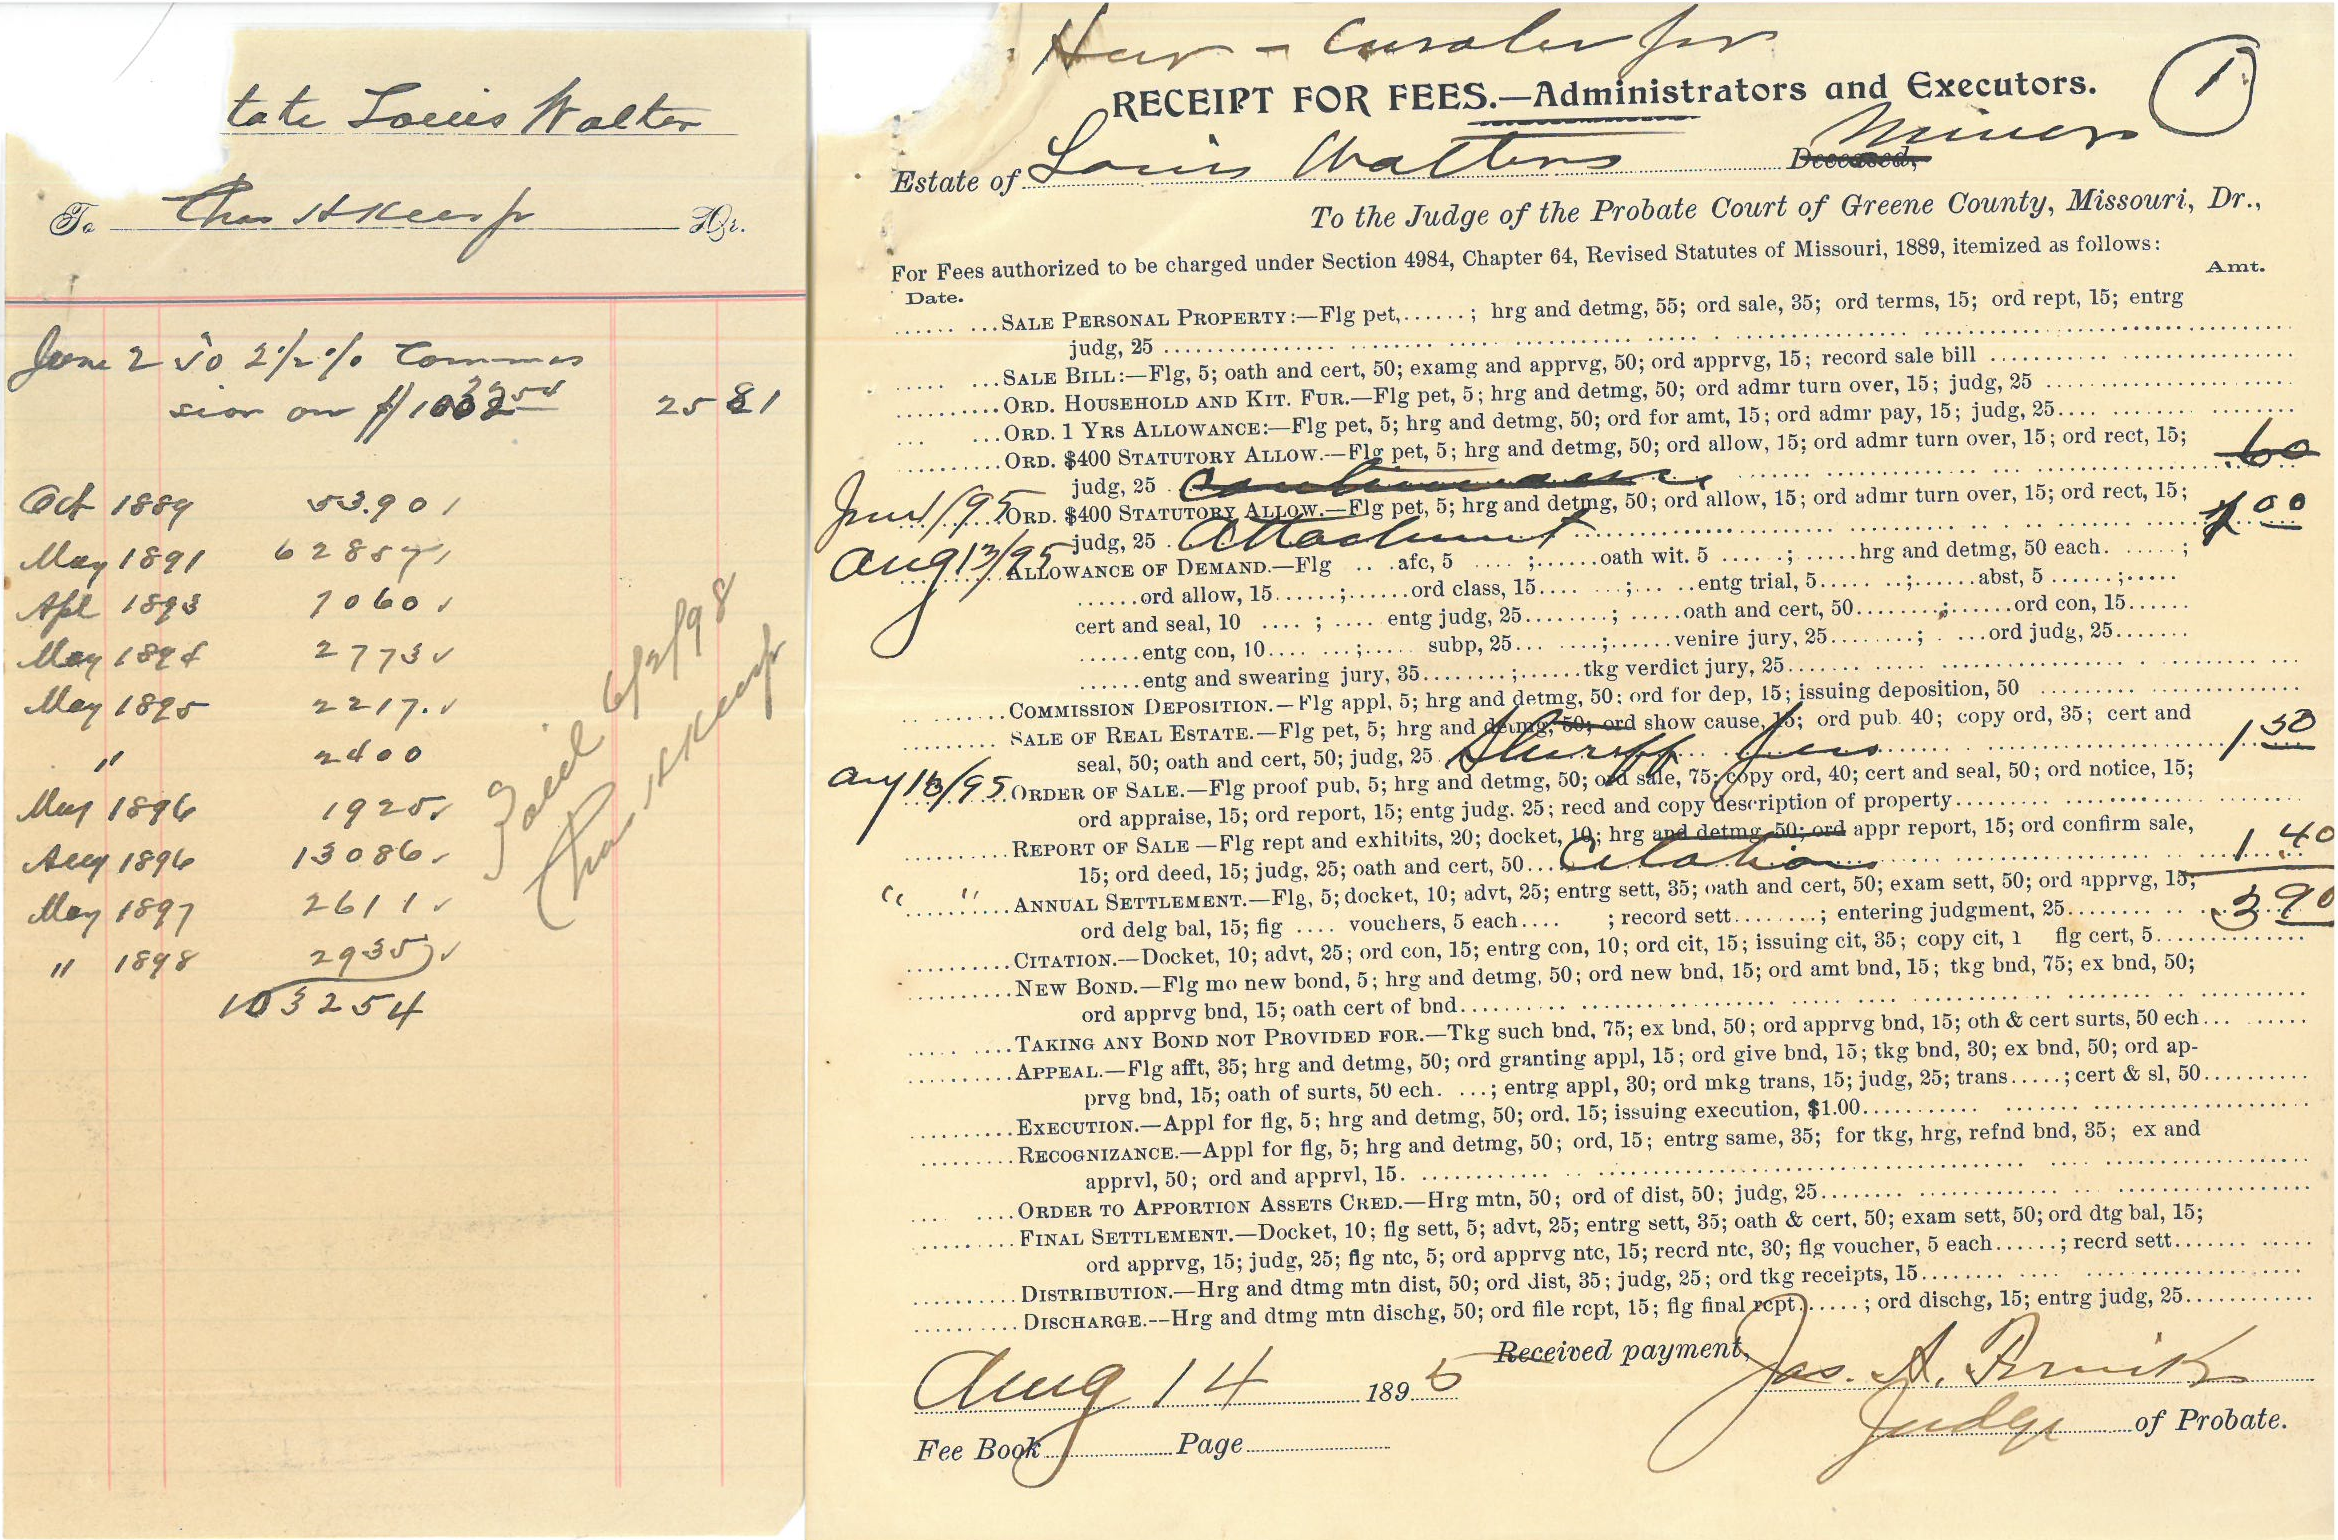 tate Louis Walter
To Chas H Keesjr Dr.
June 2 To 2 1/2 % Commis
sion on $1032 54 25 81
Oct 1889 53.90
May 1891 62857
Apl 1893 7060
May 1894 2773
May 1895 2217.
" 2400
May 1896 1925
Aug 1896 13086
May 1897 2611
" 1898 2935
103254
Paid 6/2/98
Chas H Keesjr
RECEIPT FOR FEES.—Administrators and Executors.
1
Estate of Louis Walters Deceased, Minor
To the Judge of the Probate Court of Greene County, Missouri, Dr.,
For Fees authorized to be charged under Section 4984, Chapter 64, Revised Statutes of Missouri, 1889, itemized as follows:
Date. Amt.
SALE PERSONAL PROPERTY:—Flg pet,......; hrg and detmg, 55; ord sale, 35; ord terms, 15; ord rept, 15; entrg
judg, 25
SALE BILL:—Flg, 5; oath and cert, 50; examg and apprvg, 50; ord apprvg, 15; record sale bill
ORD. HOUSEHOLD AND KIT. FUR.—Flg pet, 5; hrg and detmg, 50; ord admr turn over, 15; judg, 25
ORD. 1 YRS ALLOWANCE:—Flg pet, 5; hrg and detmg, 50; ord for amt, 15; ord admr pay, 15; judg, 25....
ORD. $400 STATUTORY ALLOW.—Flg pet, 5; hrg and detmg, 50; ord allow, 15; ord admr turn over, 15; ord rect, 15;
judg, 25 Continuance 60
ORD. $400 STATUTORY ALLOW.—Flg pet, 5; hrg and detmg, 50; ord allow, 15; ord admr turn over, 15; ord rect, 15;
judg, 25 Attachment 1 00
Aug 13/95 ALLOWANCE OF DEMAND.—Flg .. .afc, 5 .... ;......oath wit. 5 ......; ......hrg and detmg, 50 each. ......;
......ord allow, 15......;......ord class, 15.... ....;... ..entg trial, 5..... ..;......abst, 5 ......;.....
cert and seal, 10 .... ; .... entg judg, 25........; .....oath and cert, 50........;......ord con, 15......
......entg con, 10.... ...;..... subp, 25... .....;......venire jury, 25........; . ...ord judg, 25.......
......entg and swearing jury, 35........;......tkg verdict jury, 25.......
COMMISSION DEPOSITION.—Flg appl, 5; hrg and detmg, 50; ord for dep, 15; issuing deposition, 50
SALE OF REAL ESTATE.—Flg pet, 5; hrg and detmg, 50; ord show cause, 15; ord pub. 40; copy ord, 35; cert and
seal, 50; oath and cert, 50; judg, 25 Sheriff fees 1 50
Aug 13/95 ORDER OF SALE.—Flg proof pub, 5; hrg and detmg, 50; ord sale, 75; copy ord, 40; cert and seal, 50; ord notice, 15;
ord appraise, 15; ord report, 15; entg judg. 25; recd and copy description of property
REPORT OF SALE—Flg rept and exhibits, 20; docket, 10; hrg and detmg, 50; ord appr report, 15; ord confirm sale,
15; ord deed, 15; judg, 25; oath and cert, 50... Citation 1 40
" " ANNUAL SETTLEMENT.—Flg, 5; docket, 10; advt, 25; entrg sett, 35; oath and cert, 50; exam sett, 50; ord apprvg, 15;
ord delg bal, 15; flg .... vouchers, 5 each.... ; record sett........; entering judgment, 25 3 90
CITATION.—Docket, 10; advt, 25; ord con, 15; entrg con, 10; ord cit, 15; issuing cit, 35; copy cit, 1 flg cert, 5
NEW BOND.—Flg mo new bond, 5; hrg and detmg, 50; ord new bnd, 15; ord amt bnd, 15; tkg bnd, 75; ex bnd, 50;
ord apprvg bnd, 15; oath cert of bnd
TAKING ANY BOND NOT PROVIDED FOR.—Tkg such bnd, 75; ex bnd, 50; ord apprvg bnd, 15; oth & cert surts, 50 ech...
APPEAL.—Flg afft, 35; hrg and detmg, 50; ord granting appl, 15; ord give bnd, 15; tkg bnd, 30; ex bnd, 50; ord ap-
prvg bnd, 15; oath of surts, 50 ech. ...; entrg appl, 30; ord mkg trans, 15; judg, 25; trans.....; cert & sl, 50
EXECUTION.—Appl for flg, 5; hrg and detmg, 50; ord. 15; issuing execution, $1.00
RECOGNIZANCE.—Appl for flg, 5; hrg and detmg, 50; ord, 15; entrg same, 35; for tkg, hrg, refnd bnd, 35; ex and
apprvl, 50; ord and apprvl, 15.
ORDER TO APPORTION ASSETS CRED.—Hrg mtn, 50; ord of dist, 50; judg, 25
FINAL SETTLEMENT.—Docket, 10; flg sett, 5; advt, 25; entrg sett, 35; oath & cert, 50; exam sett, 50; ord dtg bal, 15;
ord apprvg, 15; judg, 25; flg ntc, 5; ord apprvg ntc, 15; recrd ntc, 30; flg voucher, 5 each......; recrd sett
DISTRIBUTION.—Hrg and dtmg mtn dist, 50; ord dist, 35; judg, 25; ord tkg receipts, 15
DISCHARGE.--Hrg and dtmg mtn dischg, 50; ord file rcpt, 15; flg final rcpt.......; ord dischg, 15; entrg judg, 25
Received payment,
Aug 14 1895
Jas. A.
Judge of Probate.
Fee Book Page